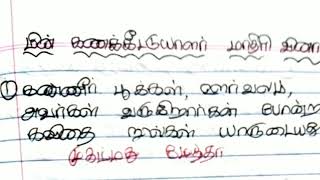 மின் கணக்கீட்டாளர் மாதிரி வினா
① கண்ணீர் பூக்கள், ஊர்வலம்,
அவர்கள் வருகிறார்கள் போன்ற
கவிதை நூல்கள் யாருடையது
மு மேத்தா